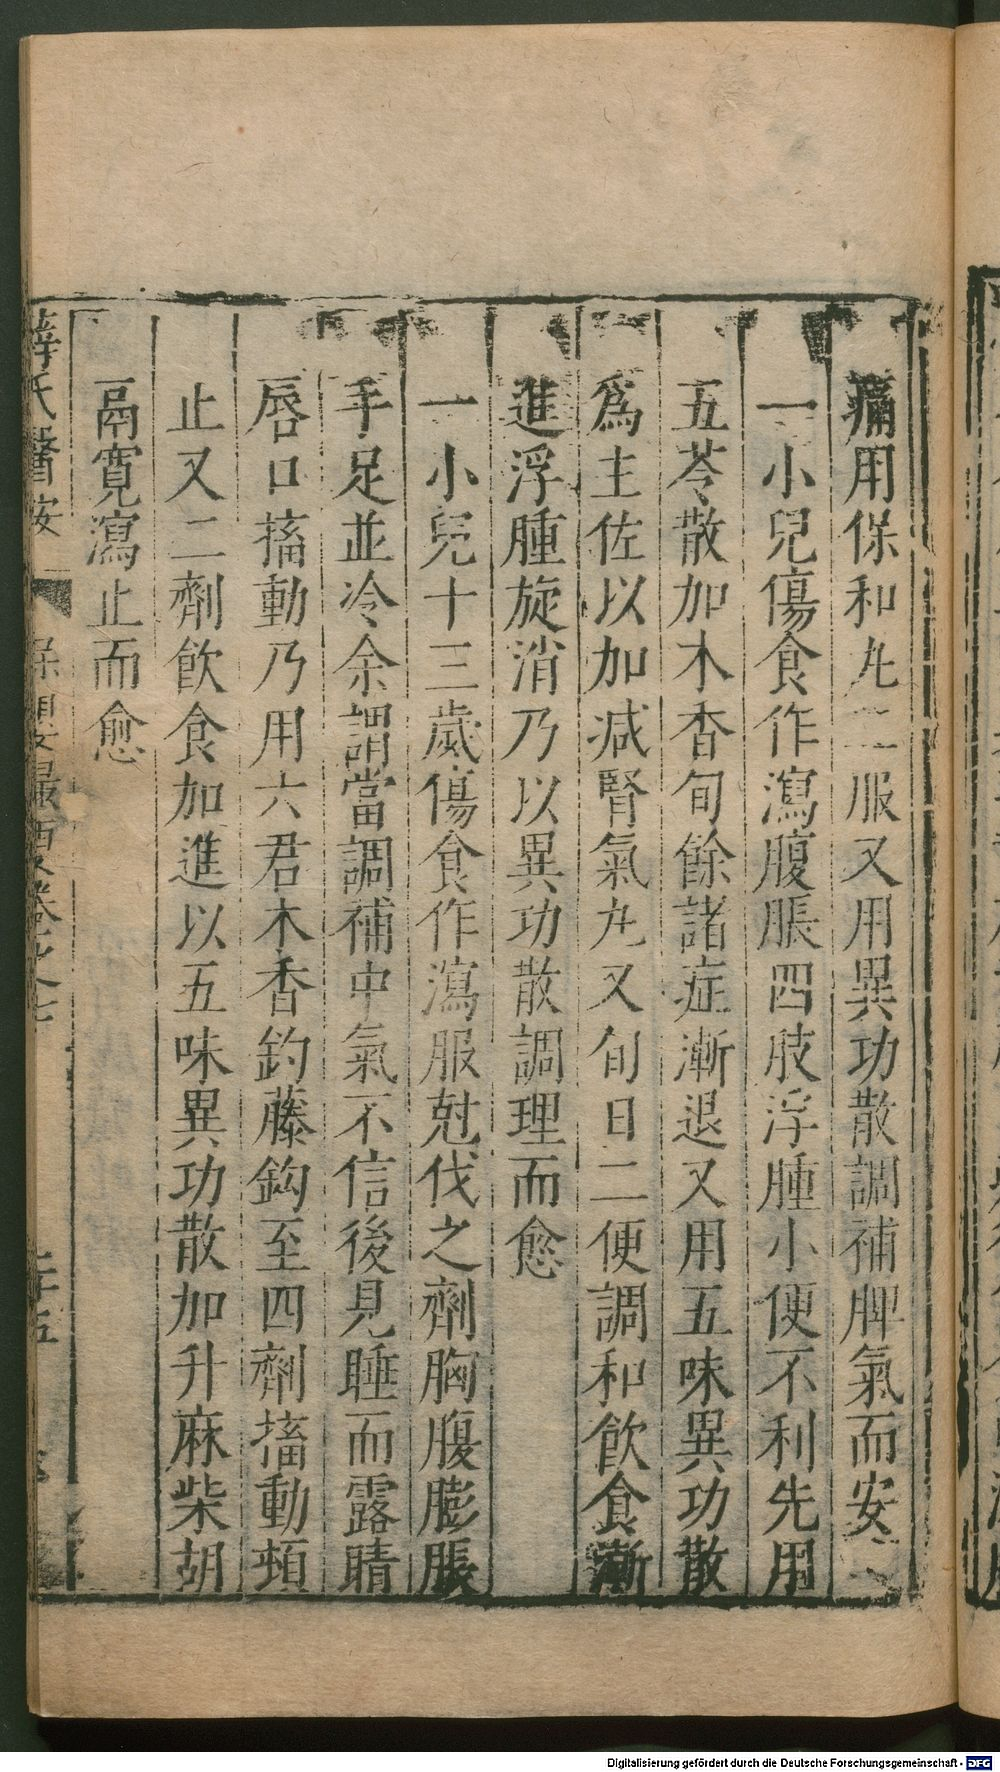 痛用保和丸二服又用異功散調補脾氣而安
一小兒傷食作瀉腹脹四肢浮腫小便不利先用
五苓散加木香旬餘諸症漸退又用五味異功散
爲主佐以加减腎氣丸又旬日二便調和飲食漸
進浮腫旋消乃以異功散調理而愈
一小兒十三歲傷食作瀉服尅伐之劑胸腹膨脹
手足並冷余謂當調補中氣不信後見睡而露睛
唇口搐動乃用六君木香釣藤鈎至四劑搐動頓
止又二劑飲食加進以五味異功散加升麻柴胡
鬲寛瀉止而愈
薛氏醫按
保嬰撮要卷之七
二十五
Digitalisierung gefördert durch die Deutsche Forschungsgemeinschaft - DFG